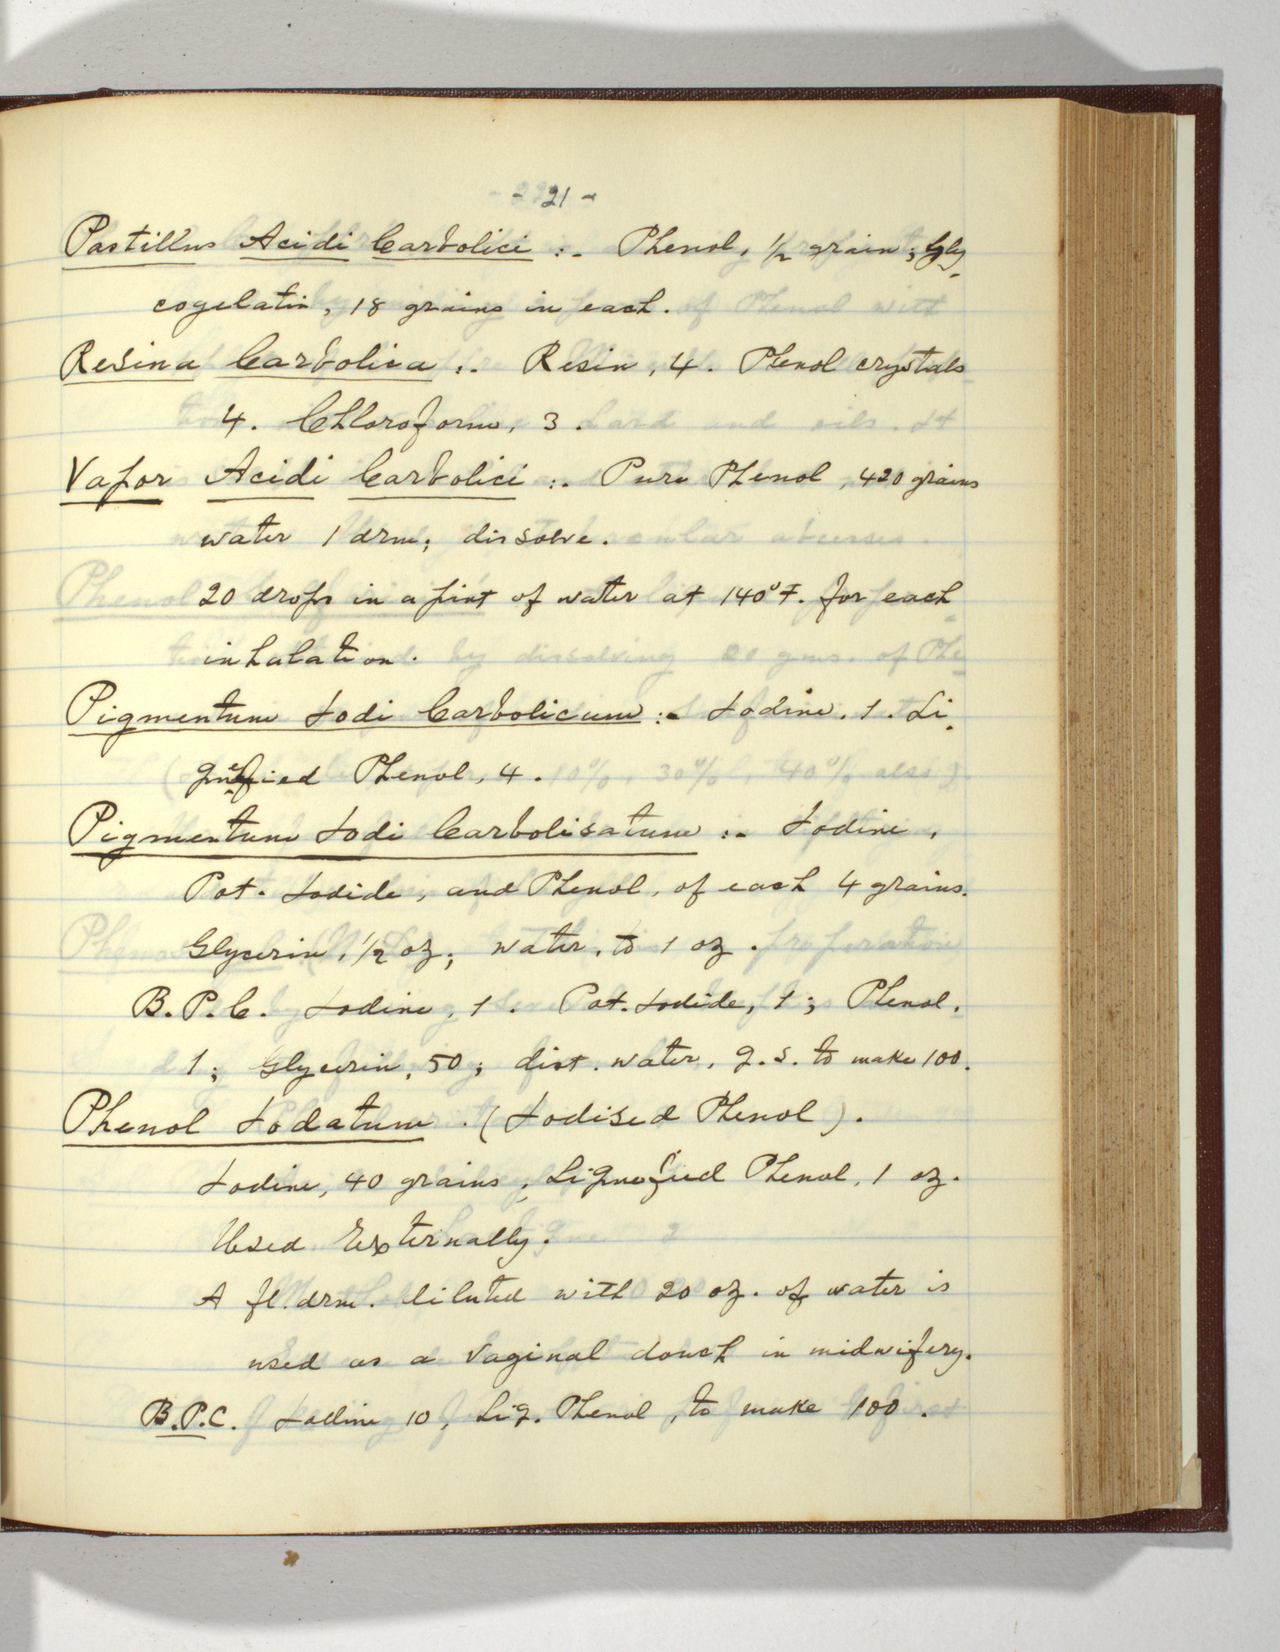 - 21 -
Pastillus Acidi Carbolici :- Phenol, 1/2 grain; Gly-
cogelatin, 18 grains in each.
Resina Carbolica :- Resin, 4. Phenol crystals
4. Chloroform, 3.
Vapor Acidi Carbolici :- Pure Phenol, 420 grains
water 1 drm; dissolve.
20 drops in a pint of water at 140°F. for each
inhalation.
Pigmentum Iodi Carbolicum :- Iodine, 1. Li-
quefied Phenol, 4.
Pigmentum Iodi Carbolisatum :- Iodine,
Pot. Iodide, and Phenol, of each 4 grains.
Glycerin, 1/2 oz; water, to 1 oz.
B.P.C. Iodine, 1. Pot. Iodide, 1; Phenol,
1; Glycerin, 50; dist. water, q.s. to make 100.
Phenol Iodatum. (Iodised Phenol).
Iodine, 40 grains; Liquefied Phenol, 1 oz.
Used Externally.
A fl. drm. diluted with 20 oz. of water is
used as a vaginal douch in midwifery.
B.P.C. Iodine 10, Liq. Phenol, to make 100.